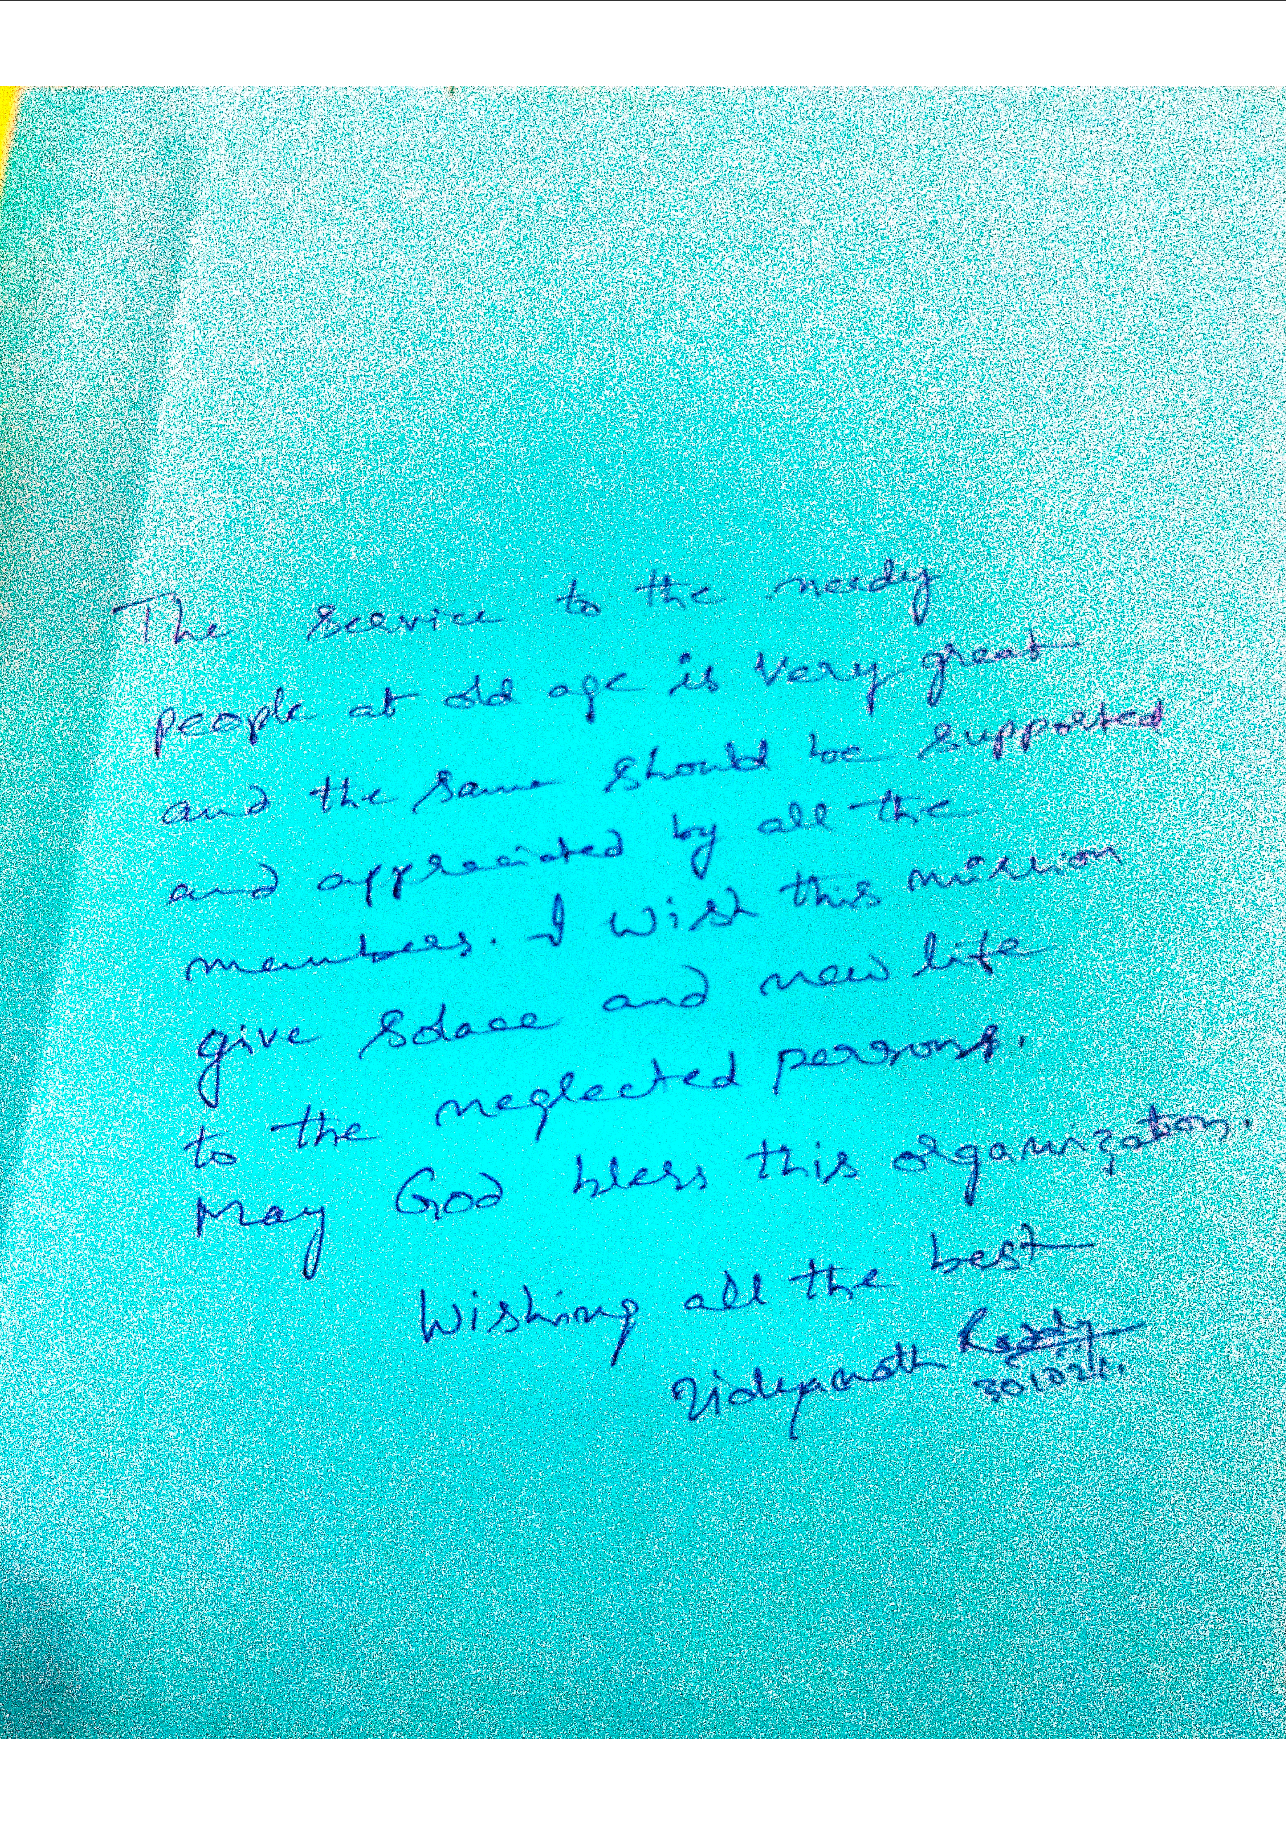 The service to the needy
people at old age is very great
and the same should be supported
and appreciated by all the
members. I wish this mission
give solace and new life
to the neglected persons.
May God bless this organization.
Wishing all the best
Vidyanath Reddy